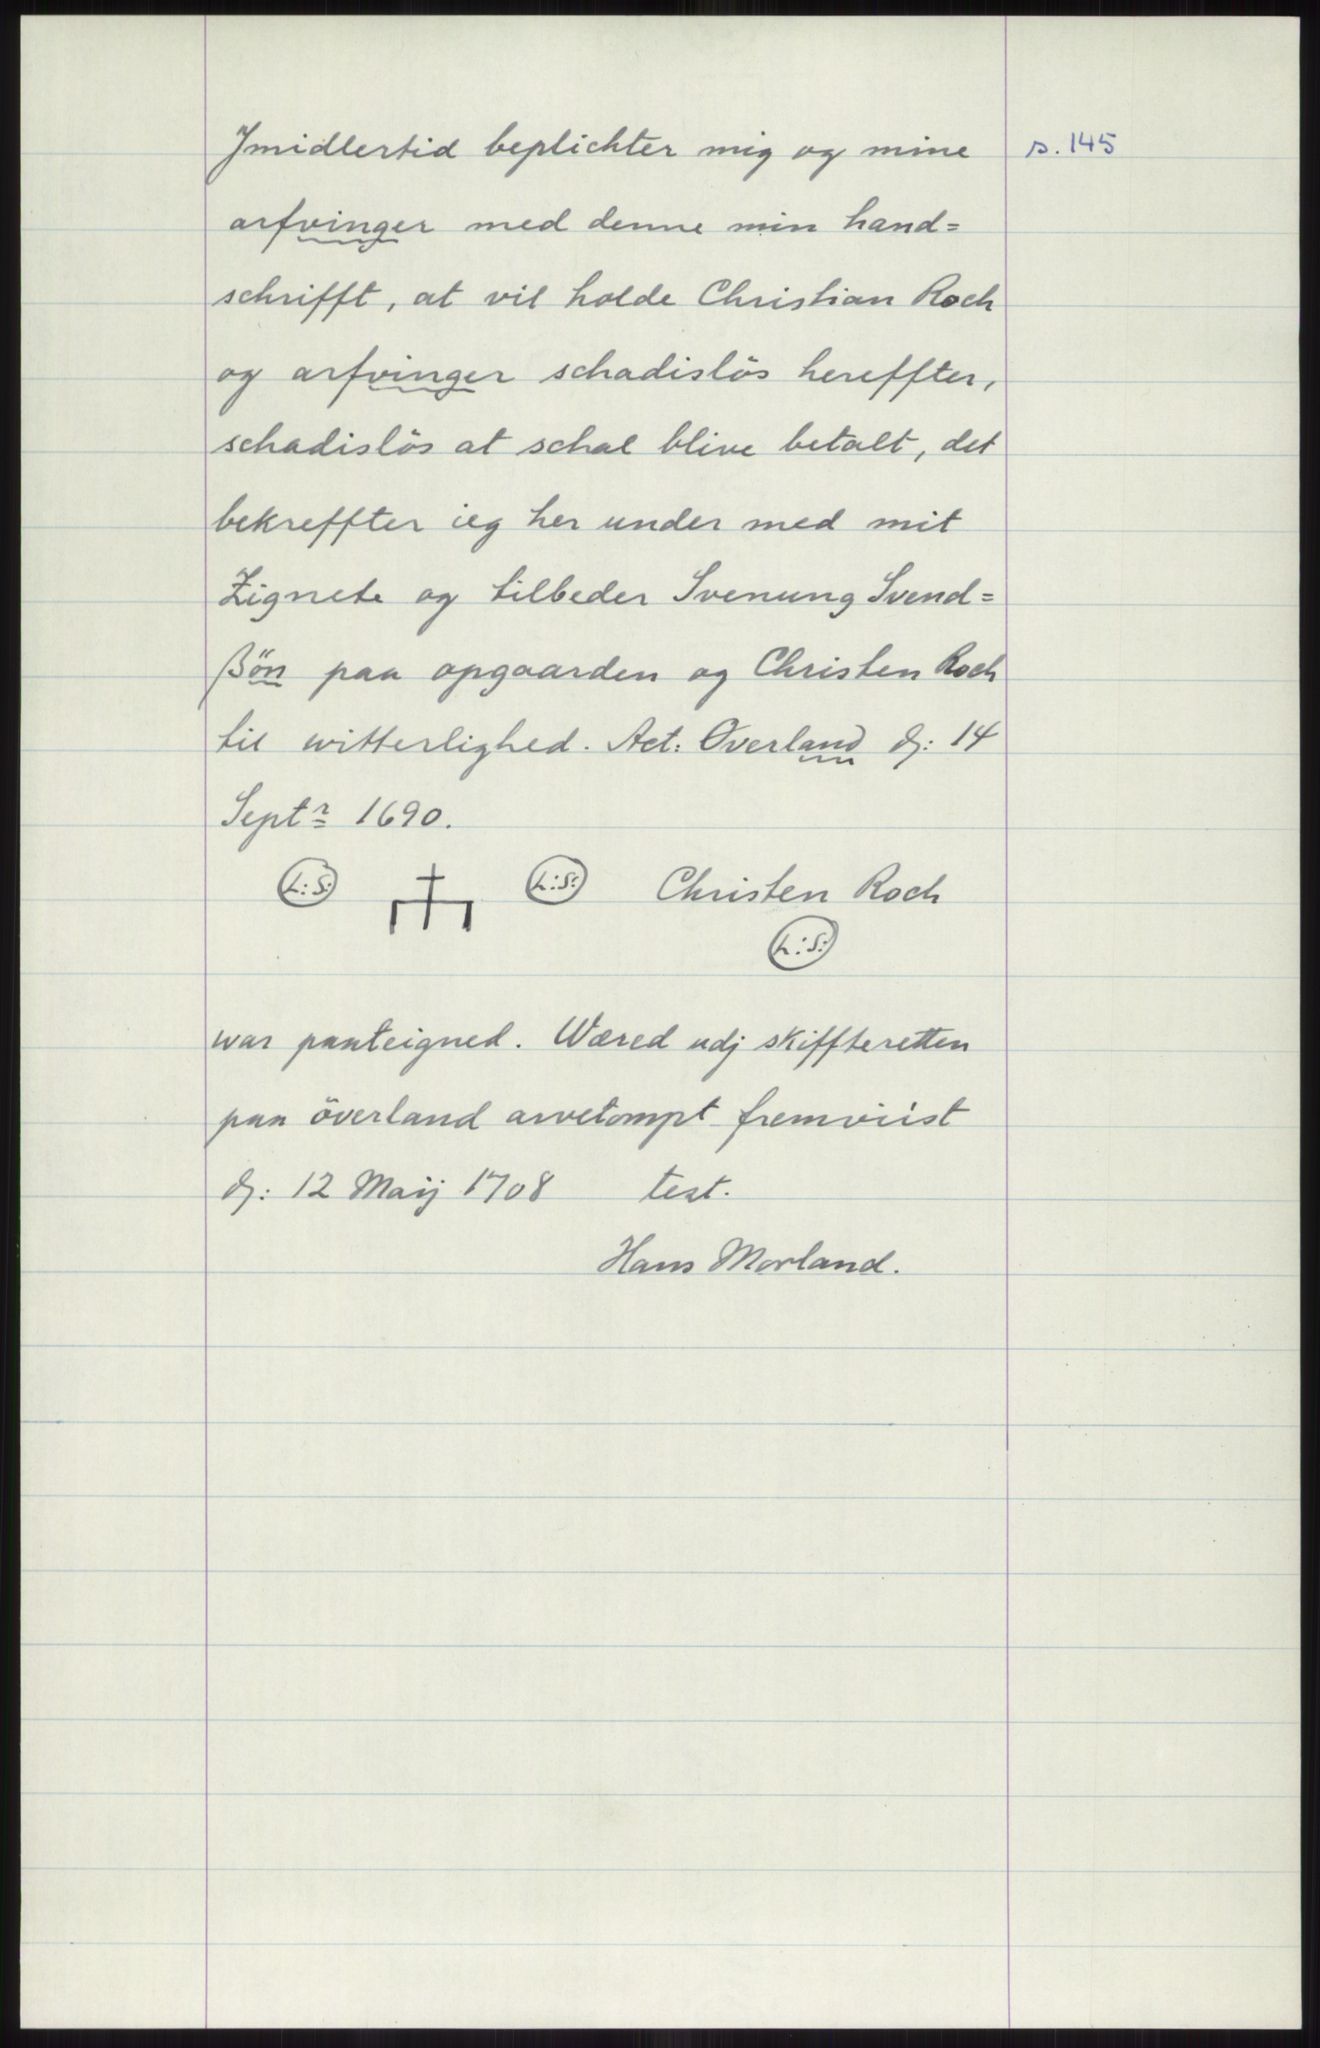 Jmidlertid beplichter mig og mine s. 145
arfvinger med denne min hand=
schrifft, at vil holde Christian Roch
og arfvinger schadislös hereffter,
schadislös at schal blive betalt, det
bekreffter ieg her under med mit
Zignete og tilbeder Svenung Svend=
ßön paa opgaarden og Christen Roch
til witterlighed. Act: Overland dj: 14
Septr 1690.
L:S: L:S: Christen Roch
L:S:
war paateigned. Wæred udj skiffteretten
paa överland arvetompt fremviist
dj: 12 Maij 1708 test.
Hans Morland.